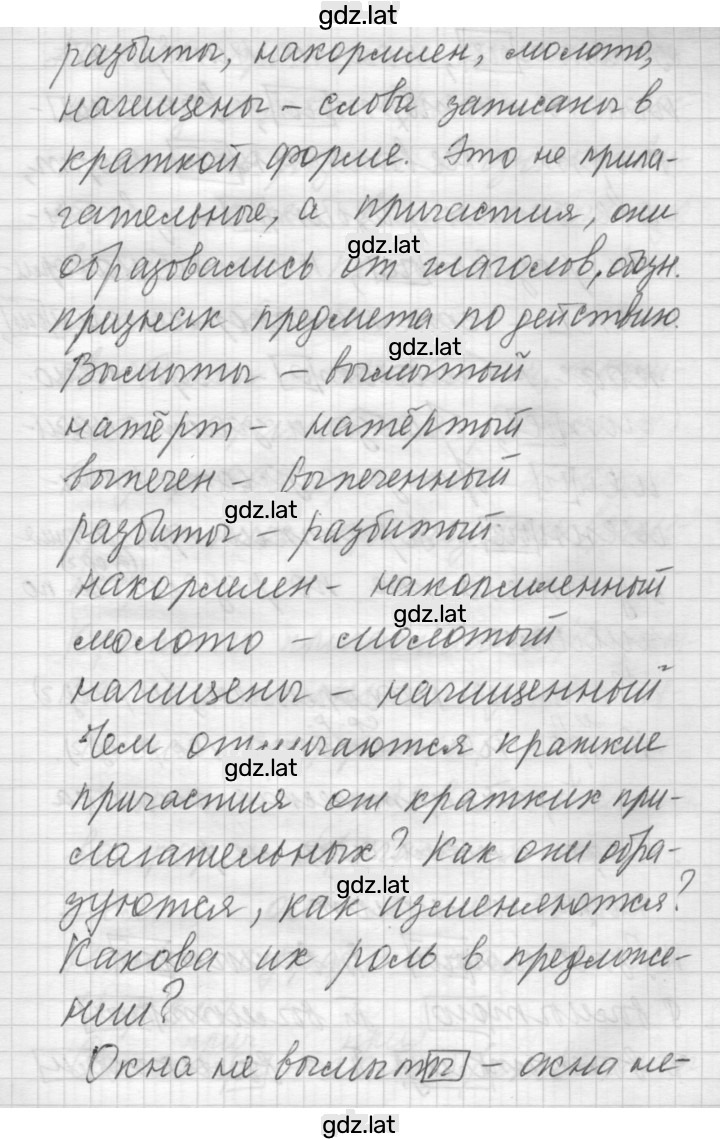 gdz.lat
разбиты, накормлен, молото,
начищены – слова записаны в
краткой форме. Это не прила-
гательные, а причастия, они
gdz.lat
образовались от глаголов, обозн.
признак предмета по действию.
gdz.lat
Вымыты – вымытый
натёрт – натёртый
выпечен – выпеченный
gdz.lat
разбиты – разбитый
накормлен – накопмленный
gdz.lat
молото – молотый
начищены – начищенный
Чем отличаются краткие
gdz.lat
причастия от кратких при-
лагательных? Как они обра-
gdz.lat
зуются, как изменяются?
Какова их роль в предложе-
нии?
Окна не вымыты – окна не-
gdz.lat